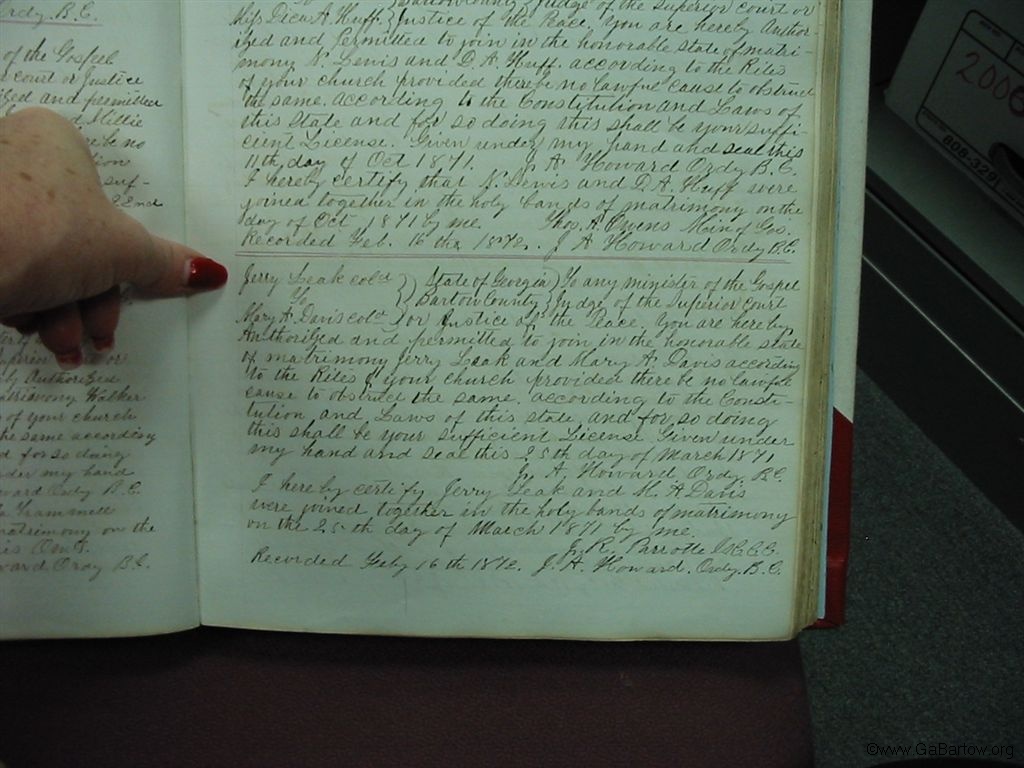 Ordy. B.C.
of the Gospel
court or Justice
ized and permitted
Millie
be no
suf-
2nd
or
Authorized
matrimony Walker
of your church
the same according
d for so doing
under my hand
ward Ordy B.C.
Trammell
matrimony on the
ward Ordy B.C.
Bartow County Judge of the Superior Court or
Miss Dica A. Huff. Justice of the Peace, You are hereby Author-
ized and permitted to join in the honorable state of matri-
mony N. Lewis and D. A. Huff. according to the Rites
of your church provided there be no lawful cause to obstruct
the same. according to the Constitution and Laws of
this State and for so doing this shall be your suffi-
cient License. Given under my hand and seal this
11th, day of Oct 1871. J. A. Howard Ordy B.C.
I hereby certify that N. Lewis and D. A. Huff were
joined together in the holy banges of matrimony on the
day of Oct 1871 by me. Thos. A. Owens Min of Gos.
Recorded Feb. 16 th 1872. J A Howard Ordy B.C.
Jerry Leak cold State of Georgia To any minister of the Gospel
To Bartow County Judge of the Superior Court
Mary A. Davis cold or Justice of the Peace. You are hereby
Authorized and permitted to join in the honorable state
of matrimony Jerry Leak and Mary A. Davis according
to the Rites of your church provided there be no lawful
cause to obstruct the same. according to the Consti-
tution, and Laws of this state and for so doing
this shall be your sufficient License Given under
my hand and seal this 25th day of March 1871
J. A. Howard Ordy. B.C.
I hereby certify Jerry Leak and M. A Davis
were joined together in the holy bands of matrimony
on the 25th day of March 1871 by me.
J. R. Parrott
Recorded Feby 16 th 1872. J. A. Howard. Ordy. B.C.
2006
808-329
©www.GaBartow.org